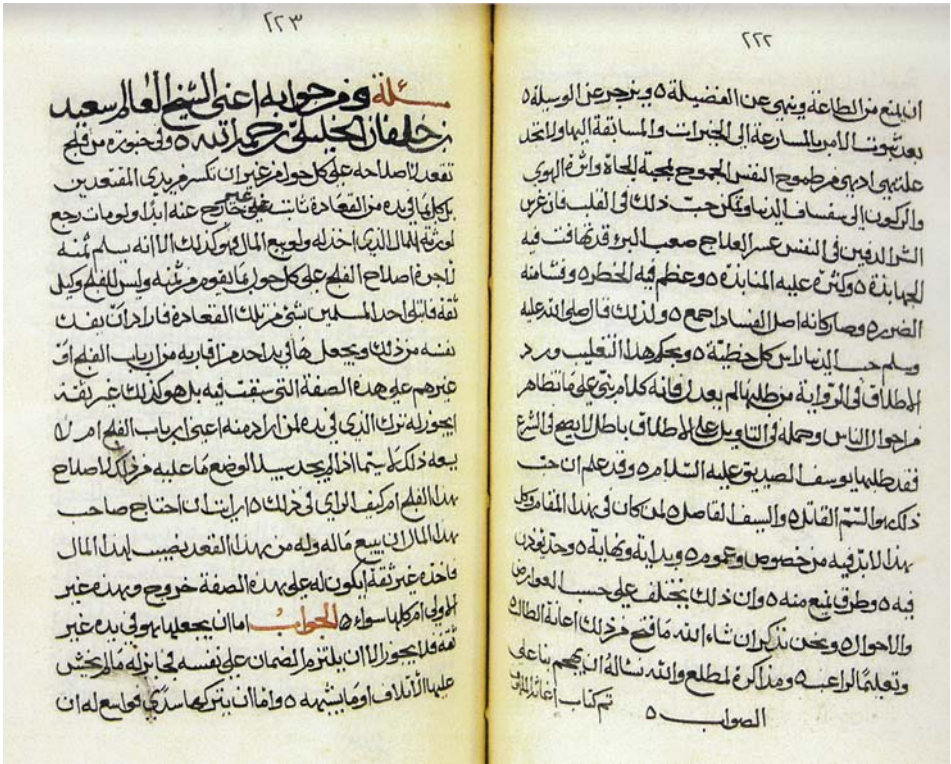 ٢٢٢
ان يمنع من الطاعة وينهى عن الفضيلة ٥ ويزجر عن الوسيلة ٥
بعد ثبوت الامر بالمسارعة الى الخيرات والمسابقة اليها ولا اتخذ
من طموح النفس الجموح لمحبة الجاه واثرة الهوى
والركون الى سفساف الدنيا وتمكن حب ذلك في القلب فان غرس
الشر الدفين في النفس عسر العلاج صعب البرء قد تهافت فيه
الجهابذة ٥ وكثرة عليه المنابذة ٥ وعظم فيه الخطر ٥
الضرر ٥ وصار كانه اصل الفساد اجمع ٥ ولذلك قال صلى الله عليه
وسلم حب الدنيا راس كل خطية ٥ وبحكم هذا التغليب ورد
الاطلاق في الرواية من طلبها لم يعدل فانه كلام مبني على ما تظاهر
من احوال الناس وحمله في التاويل على الاطلاق باطل لا يصح في الشرع
فقد طلبها يوسف الصديق عليه السلام ٥ وقد علم ان حب
ذلك هو السم القاتل ٥ والسيف الفاصل ٥ لمن كان في هذا المقام وكل
هذا لا بد فيه من خصوص وعموم ٥ وبداية ونهاية ٥ وحد
فيه ٥ وطرق يمنع منه ٥ وان ذلك يختلف على حسب العوارض
والاحوال ٥ ونحن نذكر ان شاء الله ما فتح من ذلك اعانة الطالب
وتعليما للراغب ٥ ومذاكرة لمطلع والله نساله ان يهجم بنا على
الصواب ٥ تم كتاب
٢٢٣
مسئلة ومن جوابه اعني الشيخ العالم سعيد
بن خلفان الخليلي رحمه الله ٥ وفي خبورة من فلج
تقعد لاصلاحه على كل حول من غير ان تكسر من يدي المقتعدين
بل كل ما في يده من القعادة ثابت غير خارج عنه ابدا ولو مات رجع
لورثته المال الذي اخذ له ولو بيع المال فهو كذلك الا انه يسلم ثمنه
لاجرة اصلاح الفلج على كل حول بما يقوم من ثمنه وليس للفلج وكيل
ثقة فابتلى احد المسلمين بشئ من تلك القعادة فاراد ان يفك
نفسه من ذلك ويجعل ما في يد احد من اقاربه من ارباب الفلج او
غيرهم على هذه الصفة التي سبقت فيه بل هو كذلك غير ثقة
ايجوز له ترك الذي في يده لمن اراد منه اعني ارباب الفلج ام لا
يسعه ذلك لا سيما اذا لم يجد سبيلا لوضع ما عليه من ذلك لاصلاح
هذا الفلج ام كيف الراي في ذلك ٥ ارايت ان احتاج صاحب
هذا المال ان يبيع ماله وله من هذا القعد نصيب لهذا المال
فاخذه غير ثقة ايكون له على هذه الصفة خروج وهذه غير
الاولى ام كلها سواء ٥ الجواب اما ان يجعلها هو في يده غير
ثقة فلا يجوز الا ان يلتزم الضمان على نفسه في انزله ما لم يخش
عليها الاتلاف او ما يشبهه ٥ واما ان يتركها سدى فواسع له ان